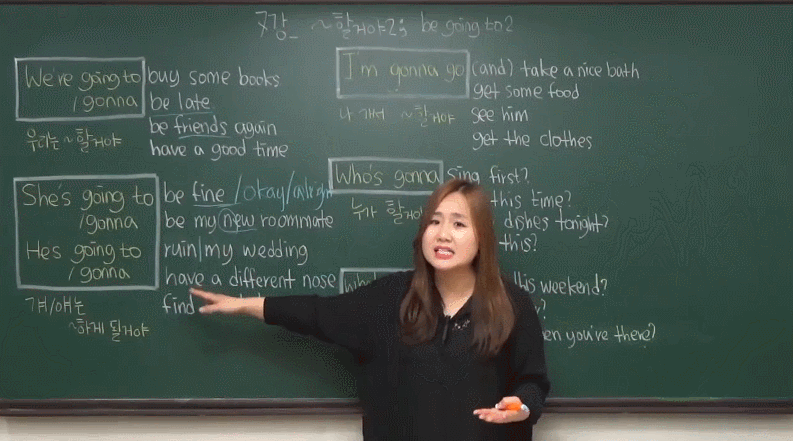 7강_ ~할거야2; be going to 2
We're going to buy some books
/gonna be late
우리는 ~할거야 be friends again
have a good time
She's going to be fine/okay/alright
/gonna be my new roommate
He's going to ruin my wedding
/gonna have a different nose
걔/얘는 find
~하게 될거야
I'm gonna go (and) take a nice bath
get some food
나 가서 ~할거야 see him
get the clothes
Who's gonna sing first?
누가 할거야 this time?
dishes tonight?
this?
this weekend?
you've there?